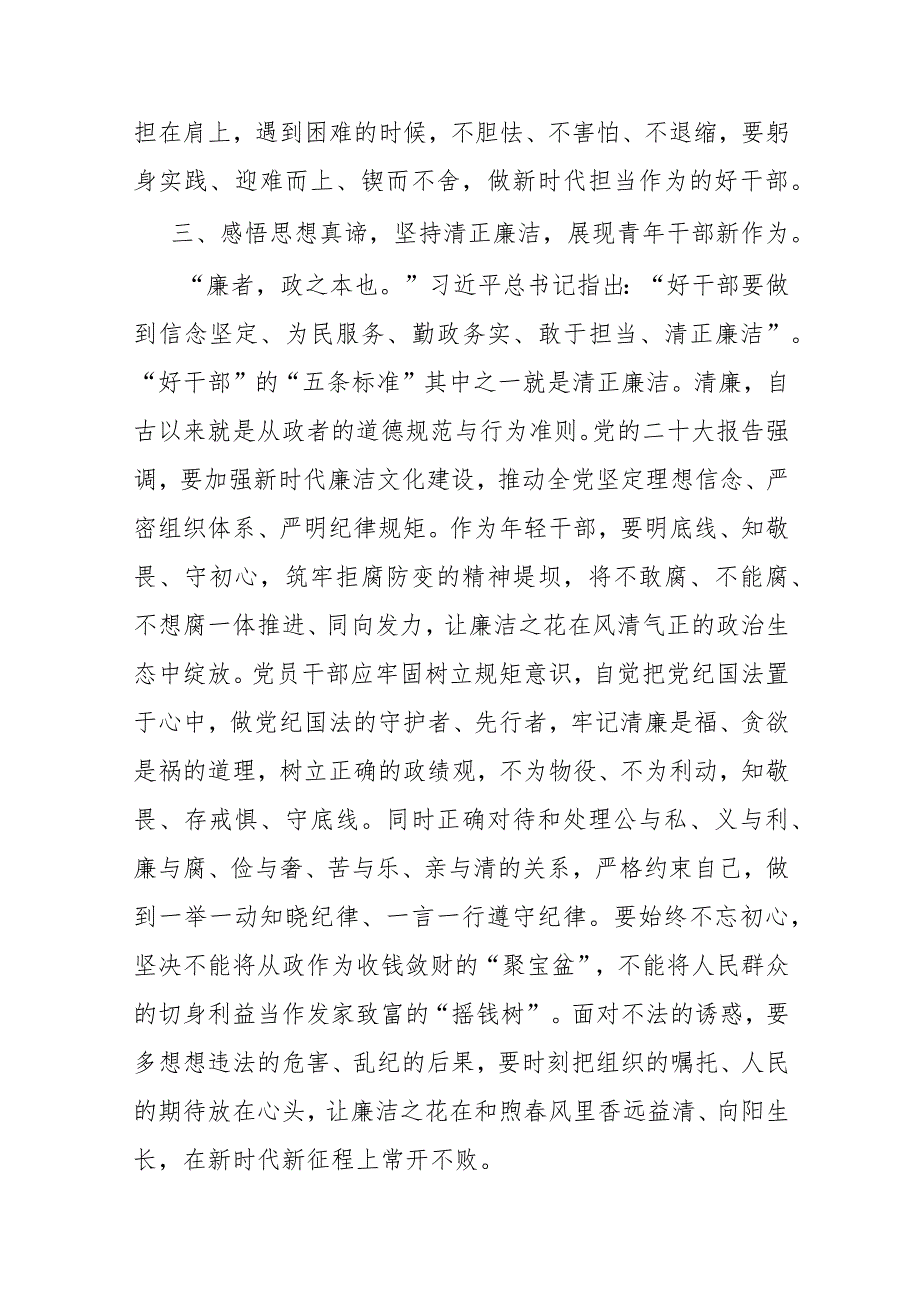 担在肩上，遇到困难的时候，不胆怯、不害怕、不退缩，要躬
身实践、迎难而上、锲而不舍，做新时代担当作为的好干部。
三、感悟思想真谛，坚持清正廉洁，展现青年干部新作为。
“廉者，政之本也。”习近平总书记指出：“好干部要做
到信念坚定、为民服务、勤政务实、敢于担当、清正廉洁”。
“好干部”的“五条标准”其中之一就是清正廉洁。清廉，自
古以来就是从政者的道德规范与行为准则。党的二十大报告强
调，要加强新时代廉洁文化建设，推动全党坚定理想信念、严
密组织体系、严明纪律规矩。作为年轻干部，要明底线、知敬
畏、守初心，筑牢拒腐防变的精神堤坝，将不敢腐、不能腐、
不想腐一体推进、同向发力，让廉洁之花在风清气正的政治生
态中绽放。党员干部应牢固树立规矩意识，自觉把党纪国法置
于心中，做党纪国法的守护者、先行者，牢记清廉是福、贪欲
是祸的道理，树立正确的政绩观，不为物役、不为利动，知敬
畏、存戒惧、守底线。同时正确对待和处理公与私、义与利、
廉与腐、俭与奢、苦与乐、亲与清的关系，严格约束自己，做
到一举一动知晓纪律、一言一行遵守纪律。要始终不忘初心，
坚决不能将从政作为收钱敛财的“聚宝盆”，不能将人民群众
的切身利益当作发家致富的“摇钱树”。面对不法的诱惑，要
多想想违法的危害、乱纪的后果，要时刻把组织的嘱托、人民
的期待放在心头，让廉洁之花在和煦春风里香远益清、向阳生
长，在新时代新征程上常开不败。